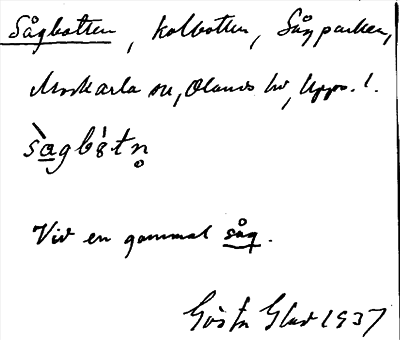 Sågbotten, kolbotten, Sågparken,
Morkarla sn, Olands hd, Upps. l.
sàgbòtn̥
Vid en gammal såg.
Gösta Glad 1937